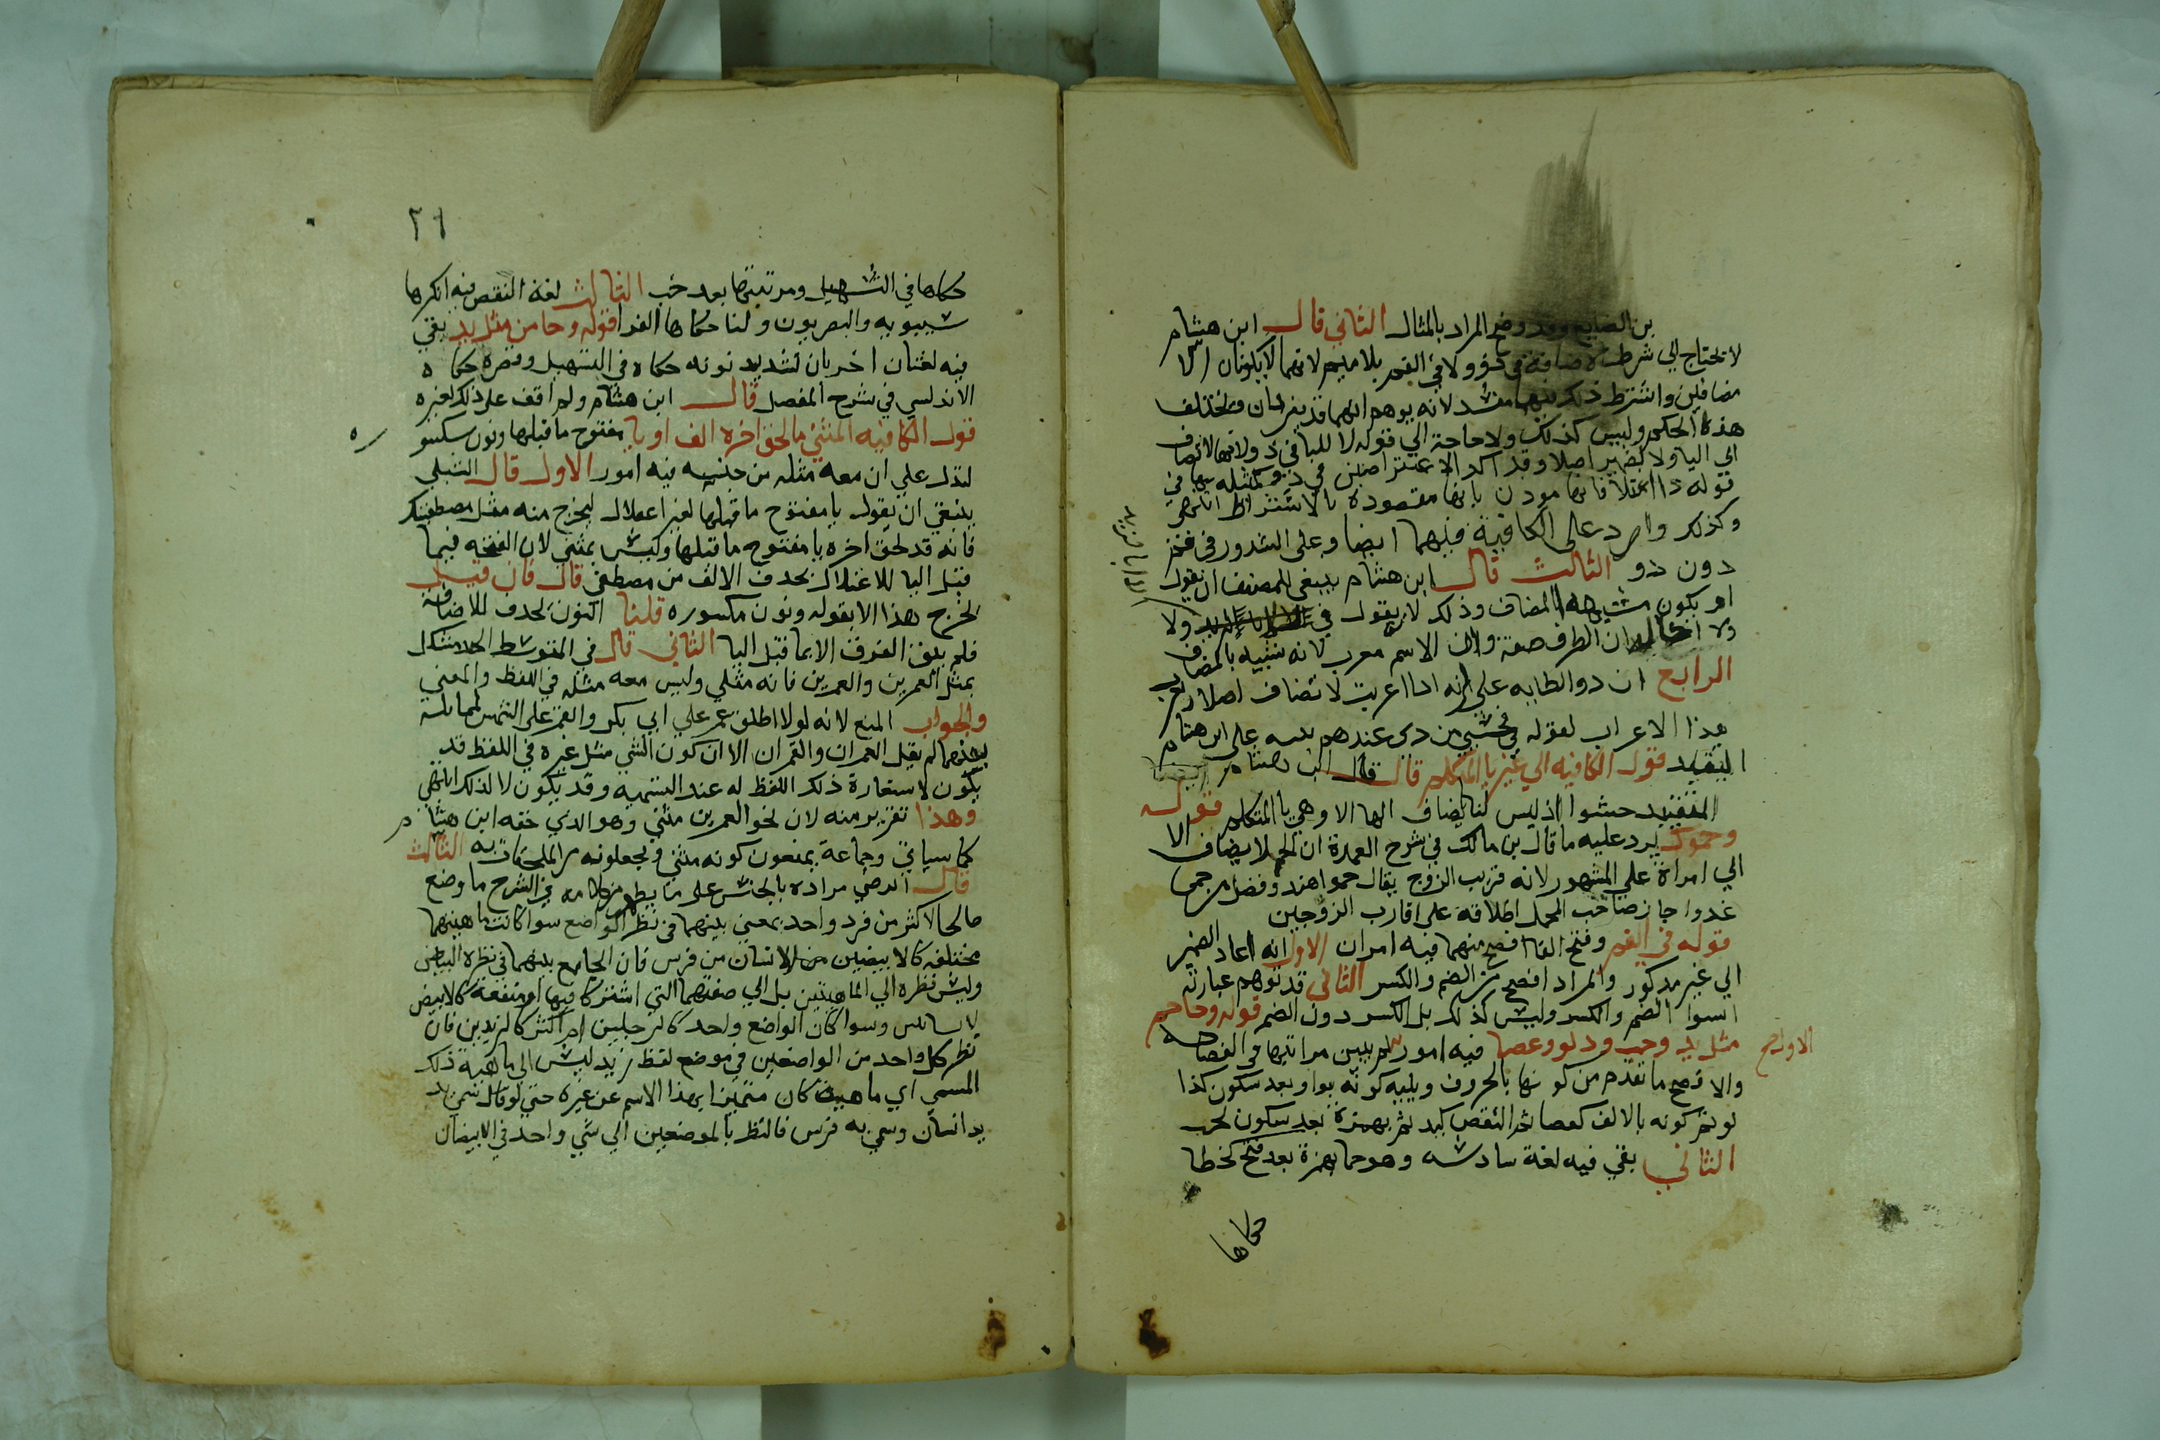 بن الصايغ وقد وضح المراد بالمثال الثاني قال ابن هشام
لا تحتاج الي شرط الاضافة في ذو ولا في الفم بلا ميم لانهما لا يكونان الا
مضافين واشترط ذلك فيهما مفسد لانه يوهم انهما قد يفردان ويختلف
هذا الحكم وليس كذلك ولا حاجة الي قوله لا لليا في ذو لانها لا تضاف
الي اليا ولا لضمير اصلا وقد اكد الاعتراضين في ذو بتمثيله بها في
قوله ذا اعتلا فانها موذن بانها مقصودة بالاشتراط
وكذلك وارد علي الكافية فيهما ايضا وعلي الشذور في
دون ذو الثالث قال ابن هشام ينبغي للمصنف ان يقول
او يكون مشبها بالمضاف وذلك لا يقول في ولا
ان الظرف صفة وان الاسم معرب لانه شبيه بالمضاف
الرابع ان ذو الطايه علي انه اذا اعربت لا تضاف اصلا
هذا الاعراب لقوله فحسبي من ذي عندهم نبه علي ابن هشام
التقييد قول الكافيه الي غير يا المتكلم قال قال ابن هشام
التقييد حشوا اذ ليس لنا يضاف الها الا وهي يا المتكلم قوله
وحموك يرد عليه ما قال بن مالك في شرح العمدة ان الحم لا يضاف الا
الي امراة علي المشهور لانه قريب الزوج يقال حمو هند
غدوا جاز صاحب المحمل اطلاقه علي اقارب الزوجين
قوله في الفم وفتح الفا افصح منهما فيه امران الاول انه اعاد الضمير
الي غير مذكور والمراد افصح من الضم والكسر الثاني قد توهم عبارته
استوا الضم والكسر وليس كذلك بل الكسر دون الضم قوله وجا حم
مثل يد وخب ودلو وعصا فيه امور لم يبين مراتبها في الفصاحه
والافصح ما تقدم من كونها بالحروف ويليه كونه بواو بعد سكون كذا
لو ثم كونه بالالف كعصا ثم النقص كيد ثم بهمزة بعد سكون لخب
الثاني بقي فيه لغة سادسه وهو حما بهمزة بعد فتح لخطا
حكاها
الاول لم
٢٦
حكاها في التسهيل ومرتبتها بعد خب الثالث لغة النقص فيه انكرها
سيبويه والبصريون ولنا حكاها الفرا قوله وجا من مثل يد بقي
فيه لغتان اخريان تشديد نونه حكاه في التسهيل وقصره حكاه
الاندلسي في شرح المفصل قال ابن هشام ولم اقف علي ذلك لغيره
قول الكافيه المثني ما لحق اخره الف او يا مفتوح ما قبلها ونون مكسو ره
لتدل علي ان معه مثله من جنسه فيه امور الاول قال النيلي
ينبغي ان يقول يا مفتوح ما قبلها لغير اعلال ليخرج منه مثل مصطفيك
فانه قد لحق اخره يا مفتوح ما قبلها وليس بمثني لان الفتحه فيما
قبل اليا للاعتلال بحذف الالف من مصطفي قال فان قيل
يخرج هذا الا بقوله ونون مكسوره قلنا النون تحذف للاضافة
فلم يبق الفرق الا بما قبل اليا الثاني قال في المتوسط الحد مشكل
بمثل العمرين والعمرين فانه مثني وليس معه مثله في اللفظ والمعني
والجواب المنع لانه لولا اطلق عمر علي ابي بكر والقمر علي الشمس لمماثلة
بينهما لم يقل العمران والقمران الا ان كون الشي مثل غيره في اللفظ قد
يكون لاستعارة ذلك اللفظ له عند التسميه وقد يكون لا لذلك انتهي
وهذا تقرير منه لان نحو العمرين مثني وهو الذي حققه ابن هشام
كما سياتي وجماعة يمنعون كونه مثني ويجعلونه من الملحقات به الثالث
قال الرضي مراده بالجنس علي ما يظهر من كلامه في الشرح ما وضع
صالحا لاكثر من فرد واحد بمعني بينهما في نظر الواضع سوا كانت ماهيتهما
مختلفه كالابيضين من الانسان من فرس فان الجامع بينهما في نظره البياض
وليس نظره الي الماهيتين بل الي صفتهما التي اشتركا فيها او متفقه كالابيض
لانسانين وسوا كان الواضع واحد كالرجلين او اكثر كالزيدين فان
نظر كل واحد من الواضعين في موضع لفظ زيد ليس الي ماهية ذلك
المسمي اي ماهية كان متميزا بهذا الاسم عن غيره حتي لو قال سمي يد
يد انسان وسمي به فرس فالنظر بالموضعين الي شي واحد في الابيضان